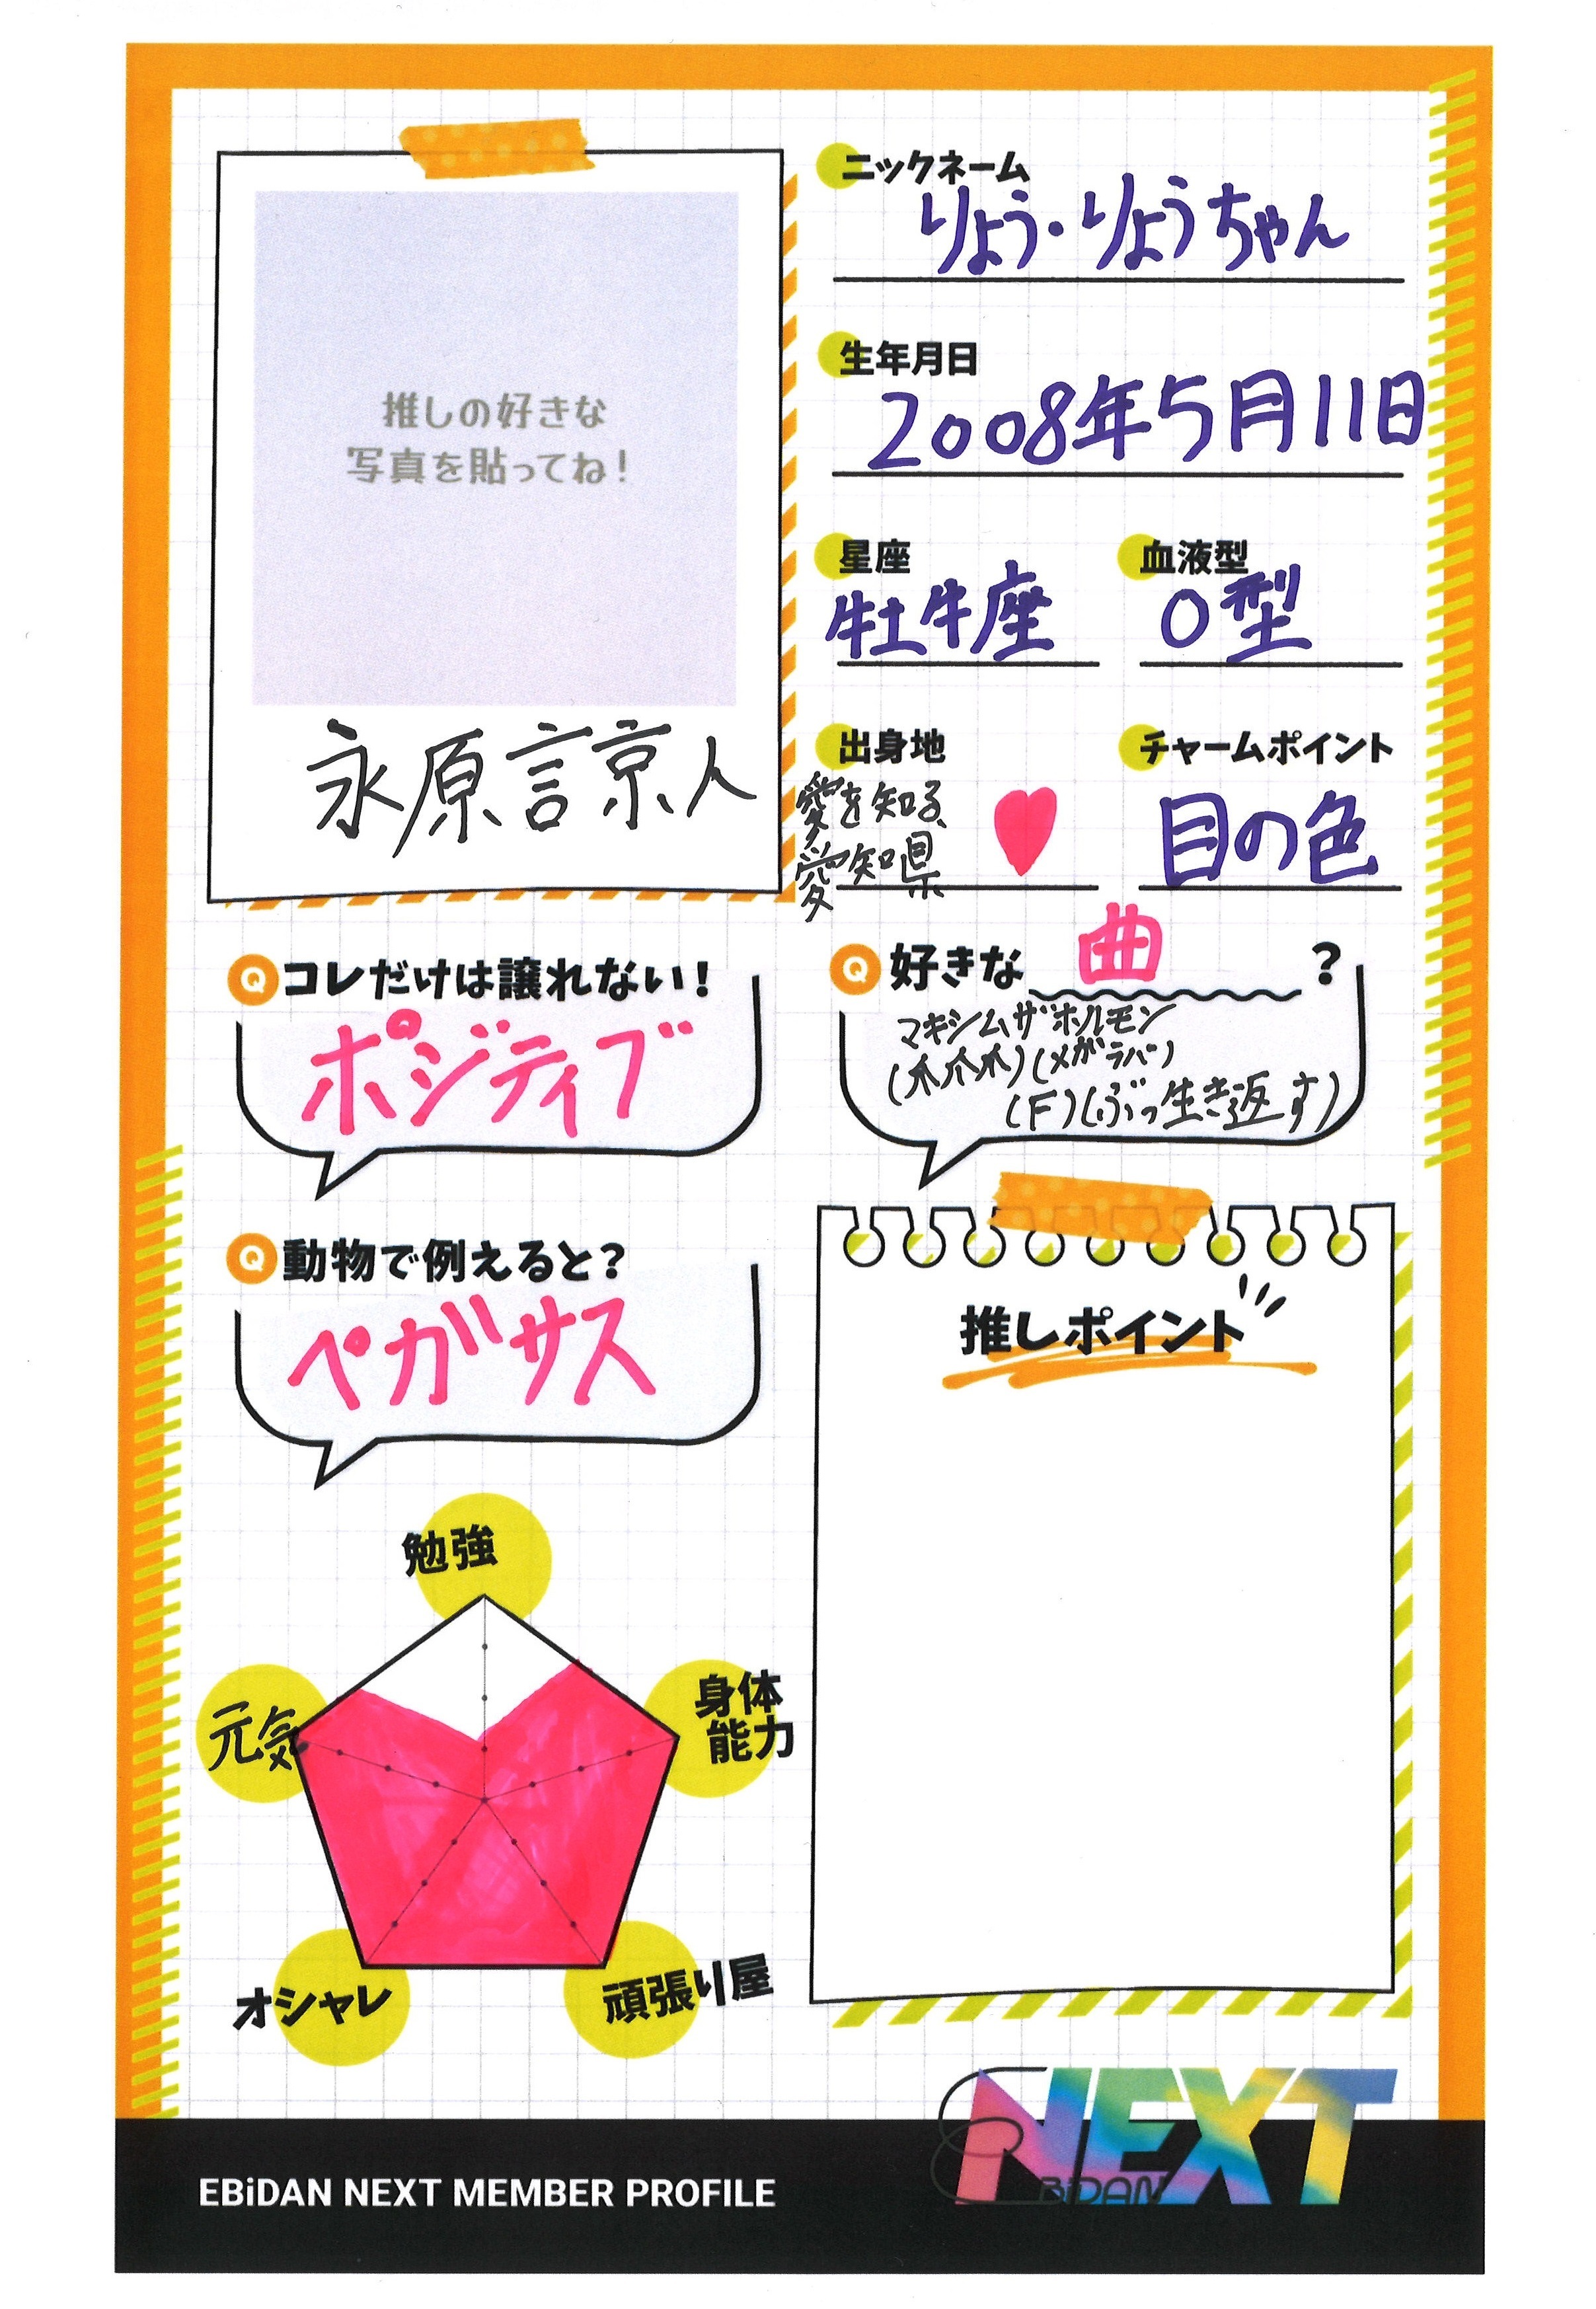 推しの好きな
写真を貼ってね！
永原諒人
ニックネーム
りょう・りょうちゃん
生年月日
2008年5月11日
星座
牡牛座
血液型
O型
出身地
愛を知る、
愛知県
チャームポイント
目の色
Q コレだけは譲れない！
ポジティブ
Q 好きな 曲 ？
マキシムザホルモン
(爪爪爪)(メガラバ)
(F)(ぶっ生き返す)
Q 動物で例えると？
ペガサス
推しポイント
勉強
元気
身体
能力
オシャレ
頑張り屋
EBiDAN NEXT MEMBER PROFILE
NEXT
EBiDAN